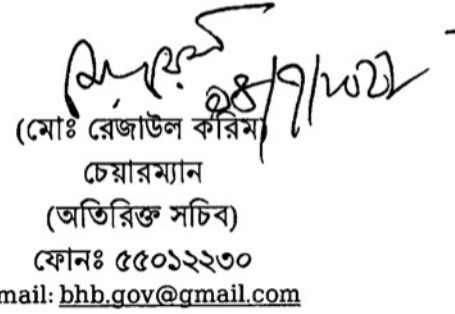 (মোঃ রেজাউল করিম)
চেয়ারম্যান
(অতিরিক্ত সচিব)
ফোনঃ ৫৫০১২২৩০
mail: bhb.gov@gmail.com